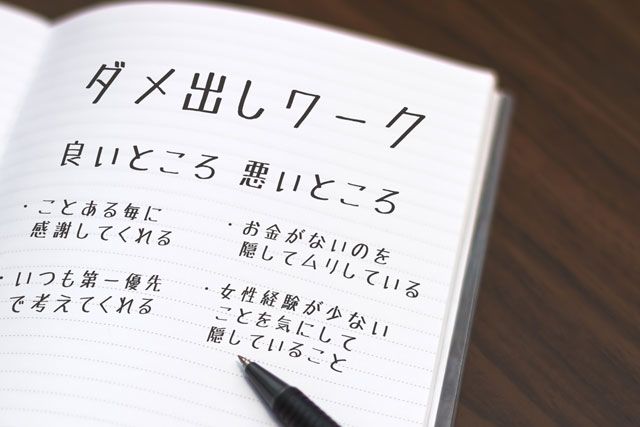 ダメ出しワーク
良いところ 悪いところ
・ことある毎に
感謝してくれる
・いつも第一優先
で考えてくれる
・お金がないのを
隠してムリしている
・女性経験が少ない
ことを気にして
隠していること